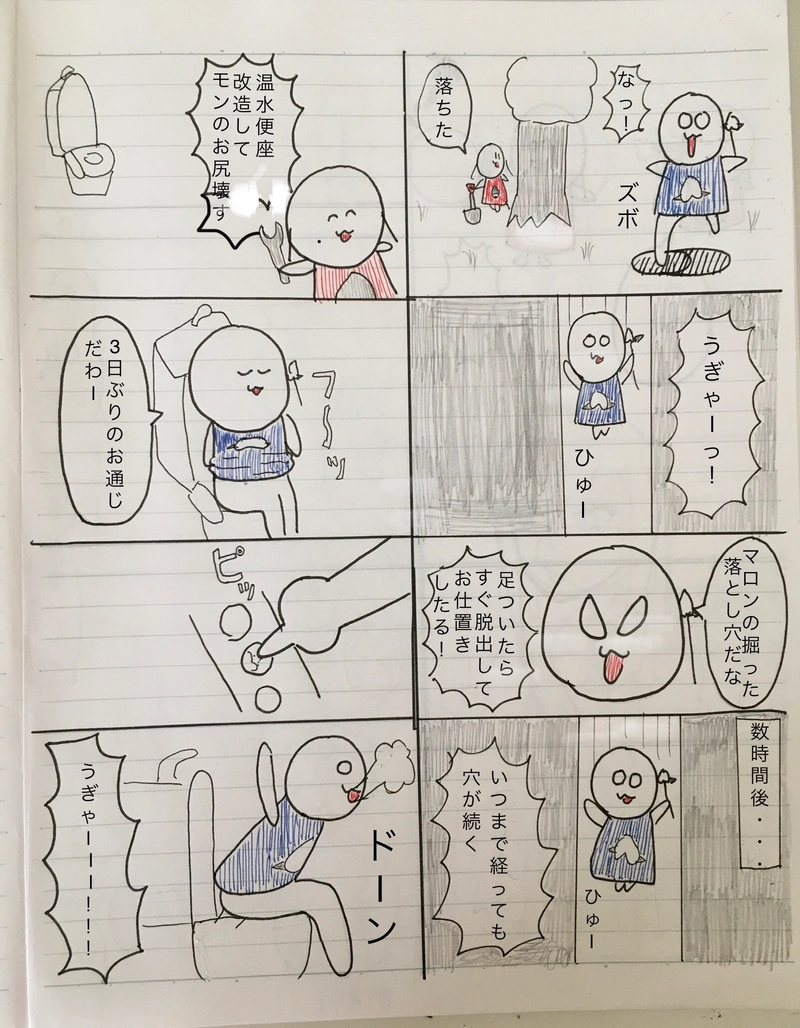 なっ!
ズボ
落ちた
うぎゃーっ!
ひゅー
マロンの掘った
落とし穴だな
足ついたら
すぐ脱出して
お仕置き
したる!
数時間後・・・
ひゅー
いつまで経っても
穴が続く
温水便座
改造して
モンのお尻壊す
フ〜ッ
3日ぶりのお通じ
だわー
ピッ
ドーン
うぎゃーーー!!!